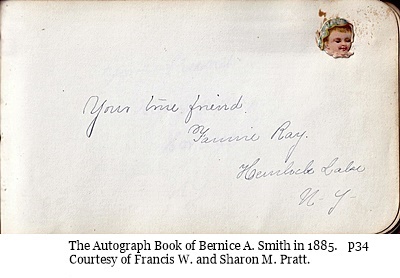 Your true friend.
Fannie Ray.
Hemlock Lake
N. Y.
The Autograph Book of Bernice A. Smith in 1885. p34
Courtesy of Francis W. and Sharon M. Pratt.